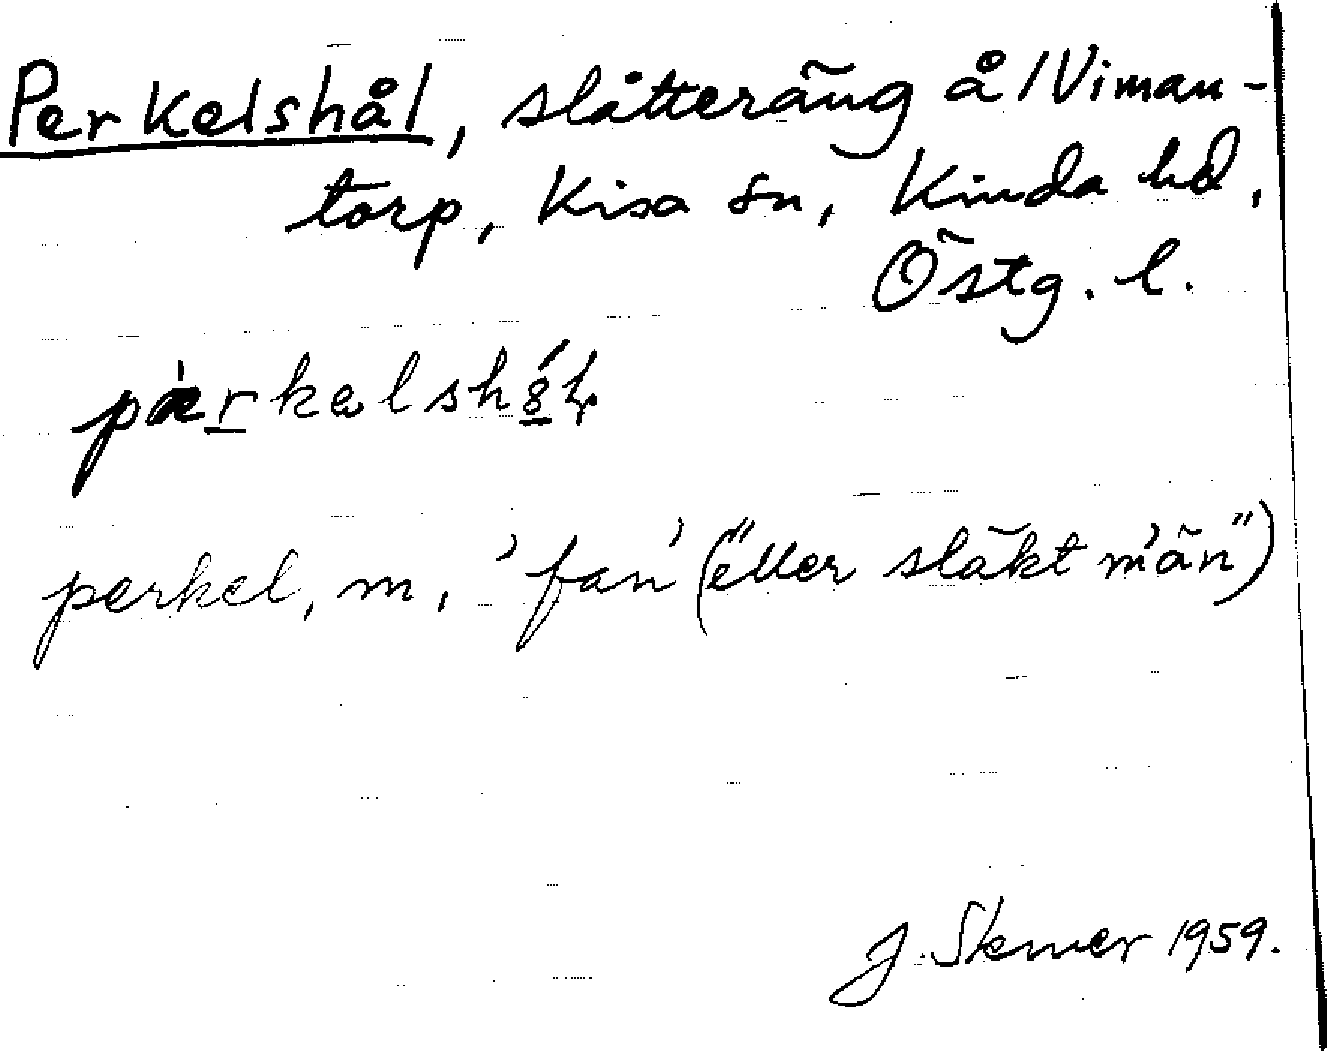 Perkelshål, slåtteräng å /Viman-
torp, Kisa sn, Kinda hd,
Östg. l.
perkel, m, 'fan' ("eller släkt m'än")
J. Skruer 1959.